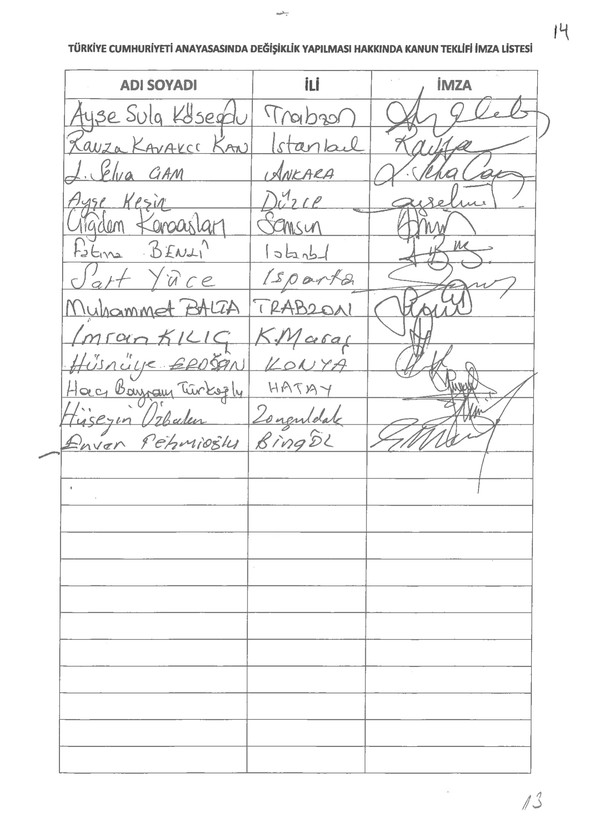 14
TÜRKİYE CUMHURİYETİ ANAYASASINDA DEĞİŞİKLİK YAPILMASI HAKKINDA KANUN TEKLİFİ İMZA LİSTESİ
ADI SOYADI İLİ İMZA
Ayşe Sula Köseoğlu Trabzon
Ravza KAVAKCI KAN İstanbul Ravza
J. Selva ÇAM ANKARA J. Selva Çam
Ayşe Keşir Düzce
Çiğdem Karaaslan Samsun
Fatma BENLİ İstanbul
Sait Yüce Isparta
Muhammet BALTA TRABZON
İmran KILIÇ K.Maraş
Hüsnüye ERDOĞAN KONYA
Hacı Bayram Türkoğlu HATAY
Hüseyin Özbakır Zonguldak
Enver Fehmioğlu BİNGÖL
13